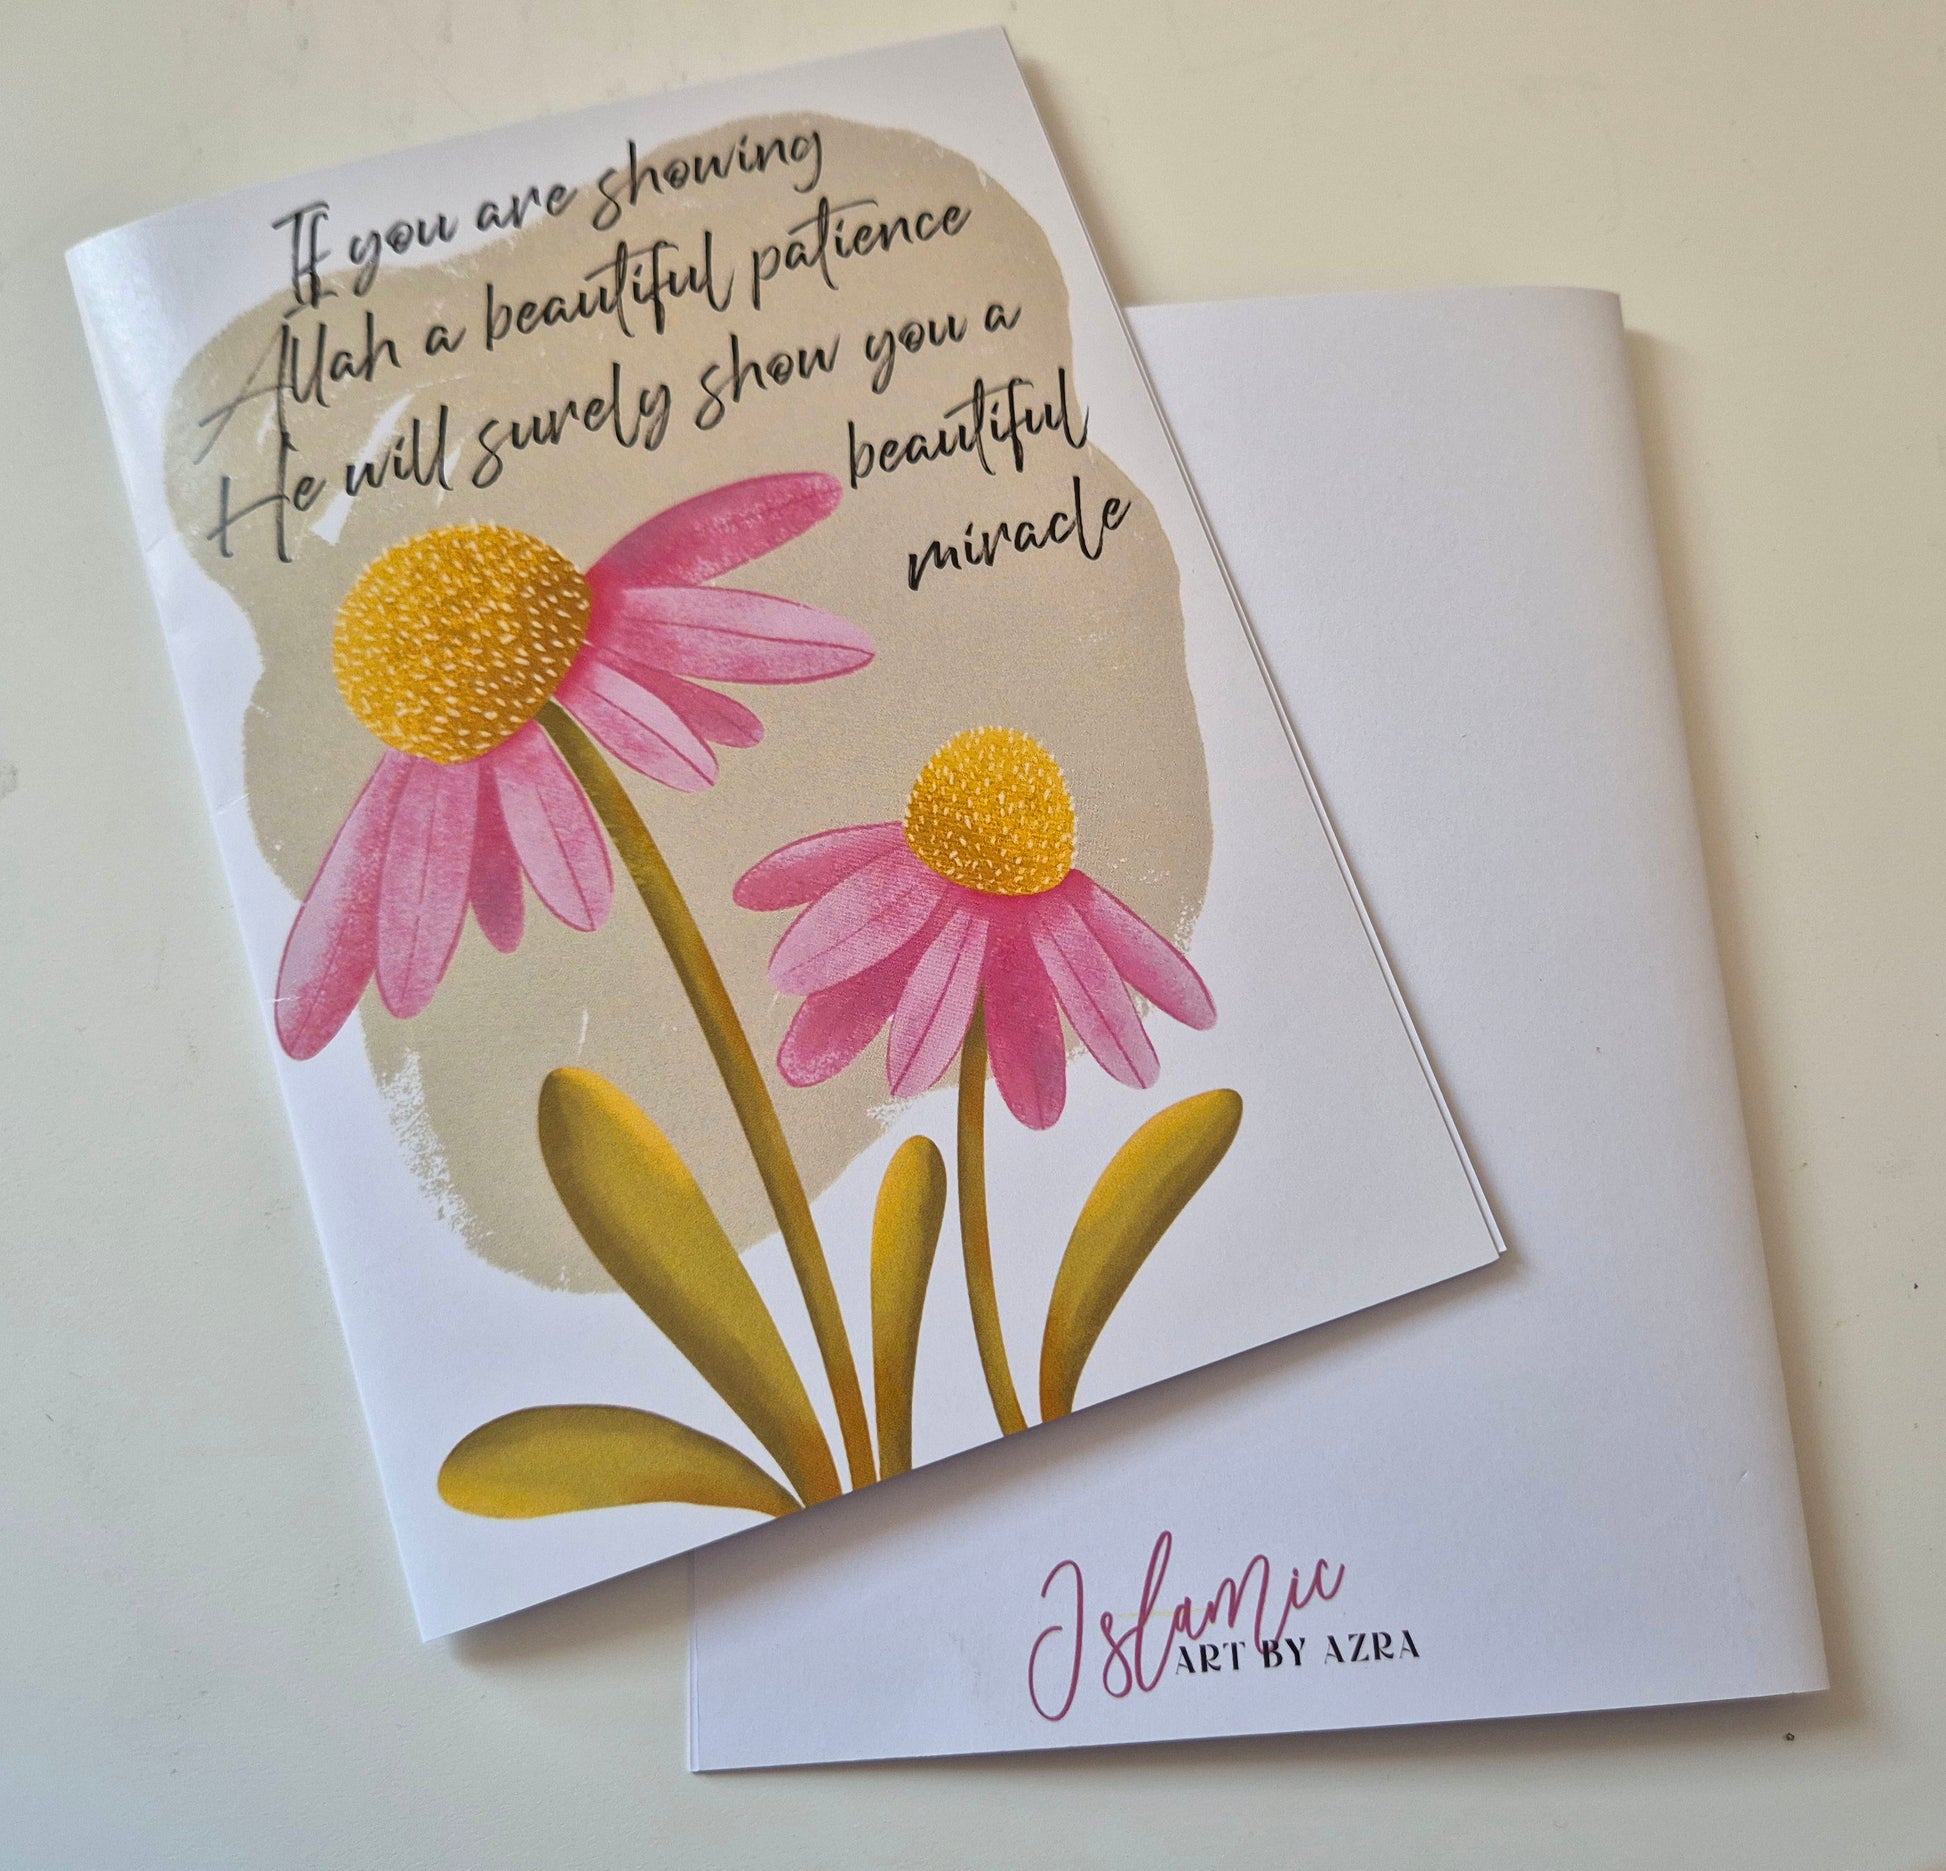 If you are showing
Allah a beautiful patience
He will surely show you a
beautiful
miracle
Islamic
ART BY AZRA